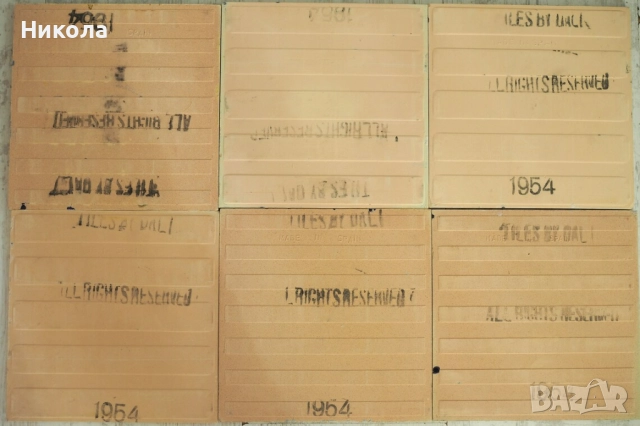 Никола
1954
ALL RIGHTS RESERVED
TILES BY DALI
1954
ALL RIGHTS RESERVED
TILES BY DAL
TILES BY DALI
LL RIGHTS RESERVED
1954
TILES BY DALI
ALL RIGHTS RESERVED
1954
TILES BY DALI
L RIGHTS RESERVED
1954
TILES BY DALI
ALL RIGHTS RESERVED
BAZAR